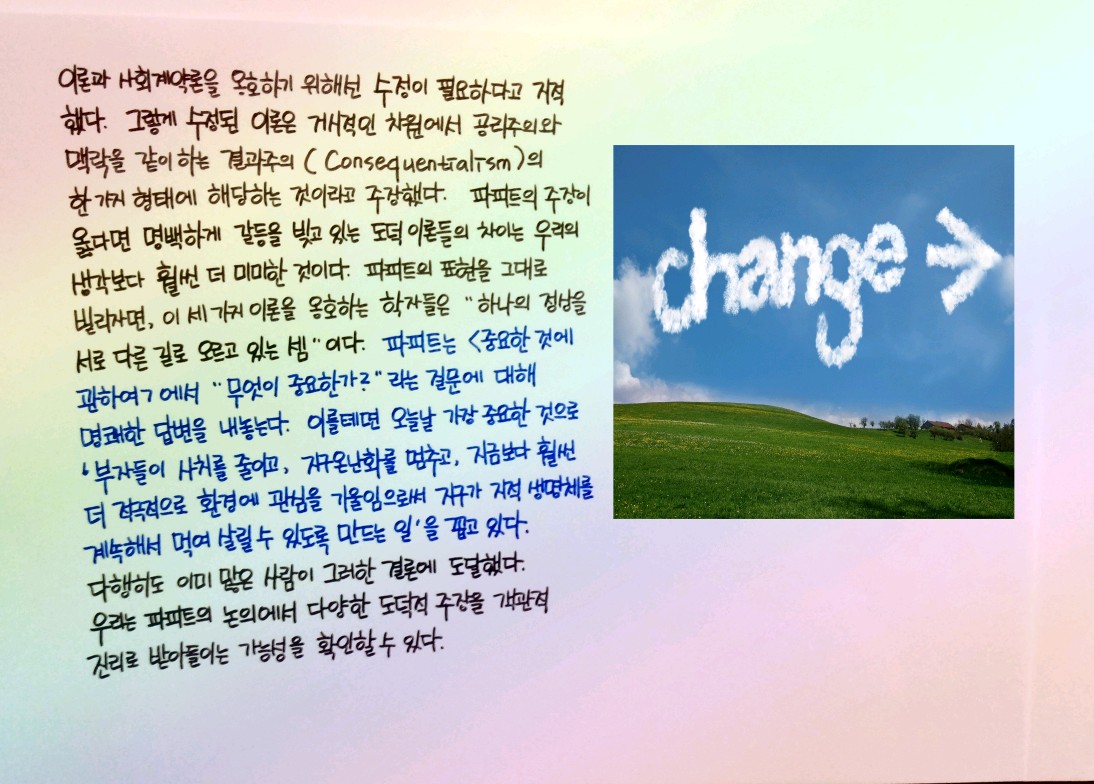 이론과 사회계약론을 옹호하기 위해선 수정이 필요하다고 지적
했다. 그렇게 수정된 이론은 거시적인 차원에서 공리주의와
맥락을 같이 하는 결과주의 (Consequentialism)의
한 가지 형태에 해당하는 것이라고 주장했다. 파피트의 주장이
옳다면 명백하게 갈등을 빚고 있는 도덕 이론들의 차이는 우리의
생각보다 훨씬 더 미미한 것이다. 파피트의 표현을 그대로
빌리자면, 이 세 가지 이론을 옹호하는 학자들은 "하나의 정상을
서로 다른 길로 오르고 있는 셈"이다. 파피트는 <중요한 것에
관하여>에서 "무엇이 중요한가?"라는 질문에 대해
명쾌한 답변을 내놓는다. 이를테면 오늘날 가장 중요한 것으로
'부자들이 사치를 줄이고, 지구온난화를 멈추고, 지금보다 훨씬
더 적극적으로 환경에 관심을 기울임으로써 지구가 지적 생명체를
계속해서 먹여 살릴 수 있도록 만드는 일'을 꼽고 있다.
다행히도 이미 많은 사람이 그러한 결론에 도달했다.
우리는 파피트의 논의에서 다양한 도덕적 주장을 객관적
진리로 받아들이는 가능성을 확인할 수 있다.
change →